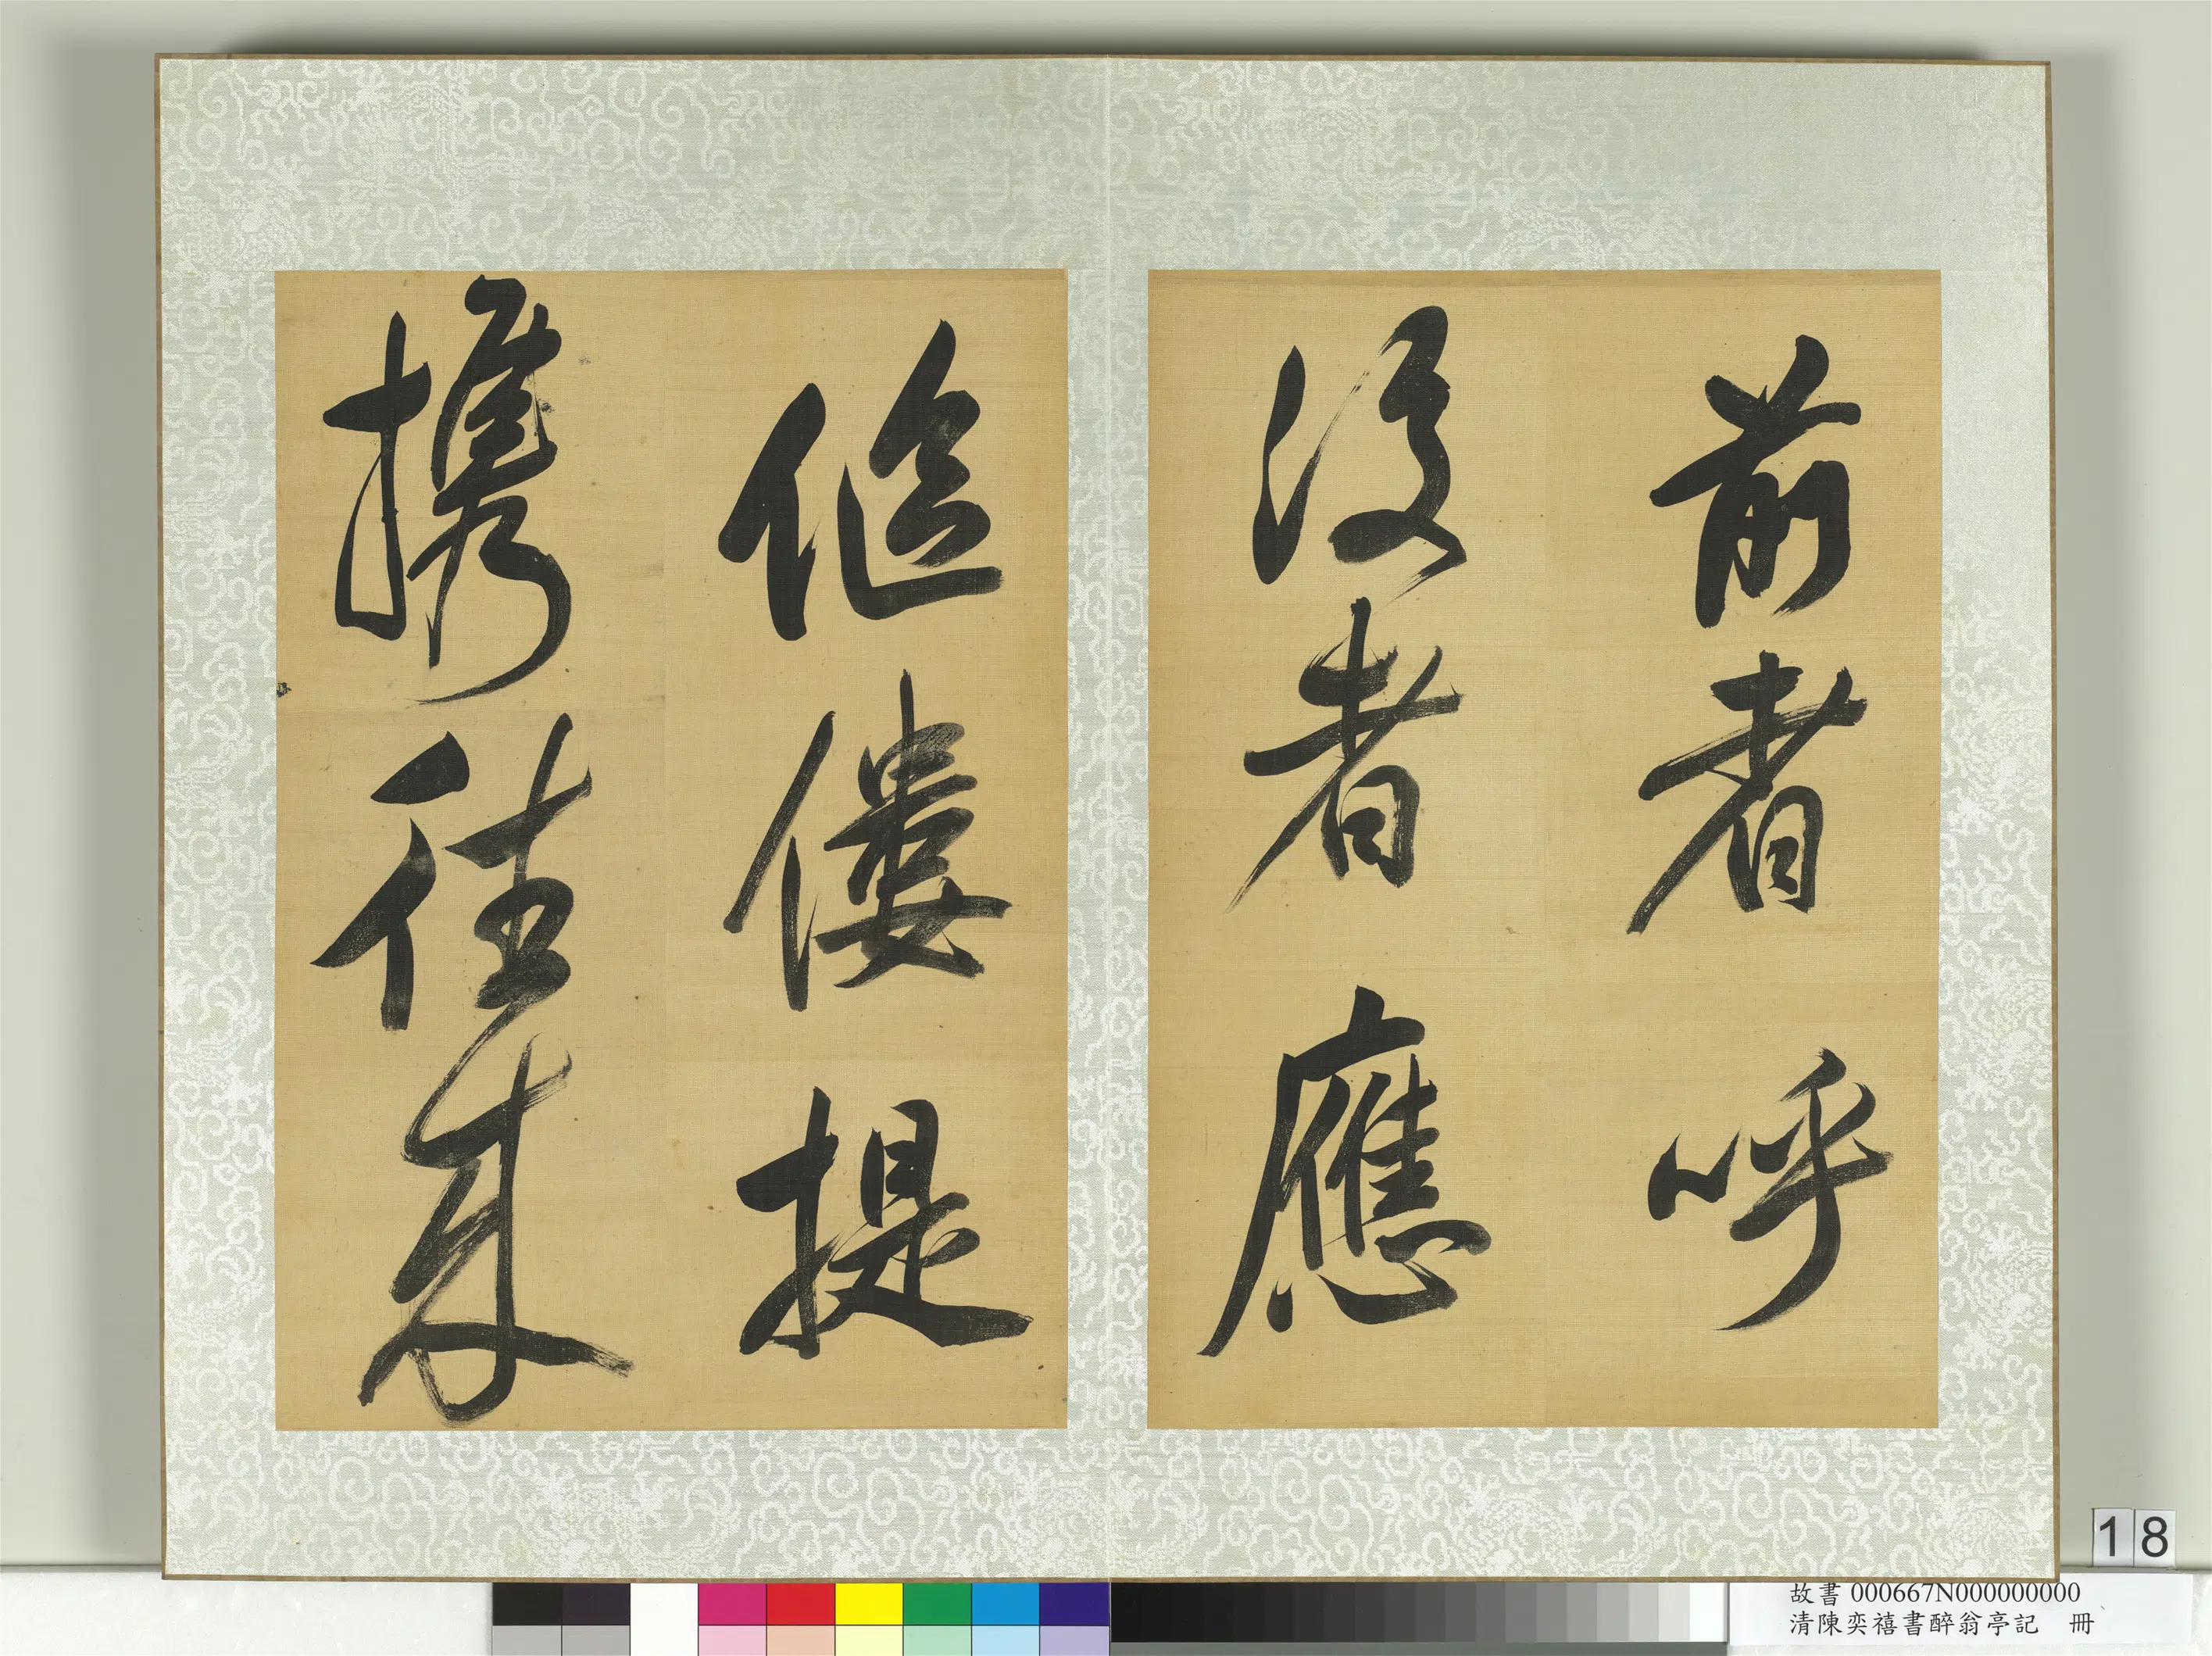 前者呼
後者應
傴僂提
攜往来
18
故書 000667N000000000
清陳奕禧書醉翁亭記 冊